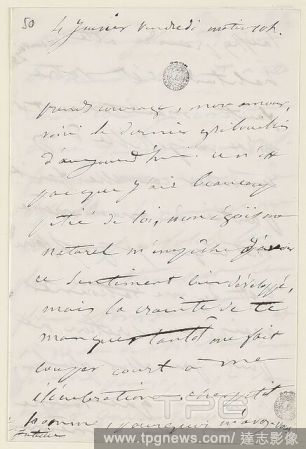 50
4 Janvier Vendredi matin 10h.
prends courage, mon amour,
voici le dernier gribouillis
d'aujourd'hui. ce n'est
pas que j'aie beaucoup
pitié de toi, mon égoïsme
naturel m'empêche d'avoir
ce sentiment bien développé,
mais la crainte de te
manquer tantôt me fait
couper court à me
élucubrations. cher petit
homme, pourquoi m'avez-vous
TPG
www.tpgnews.com/達志影像